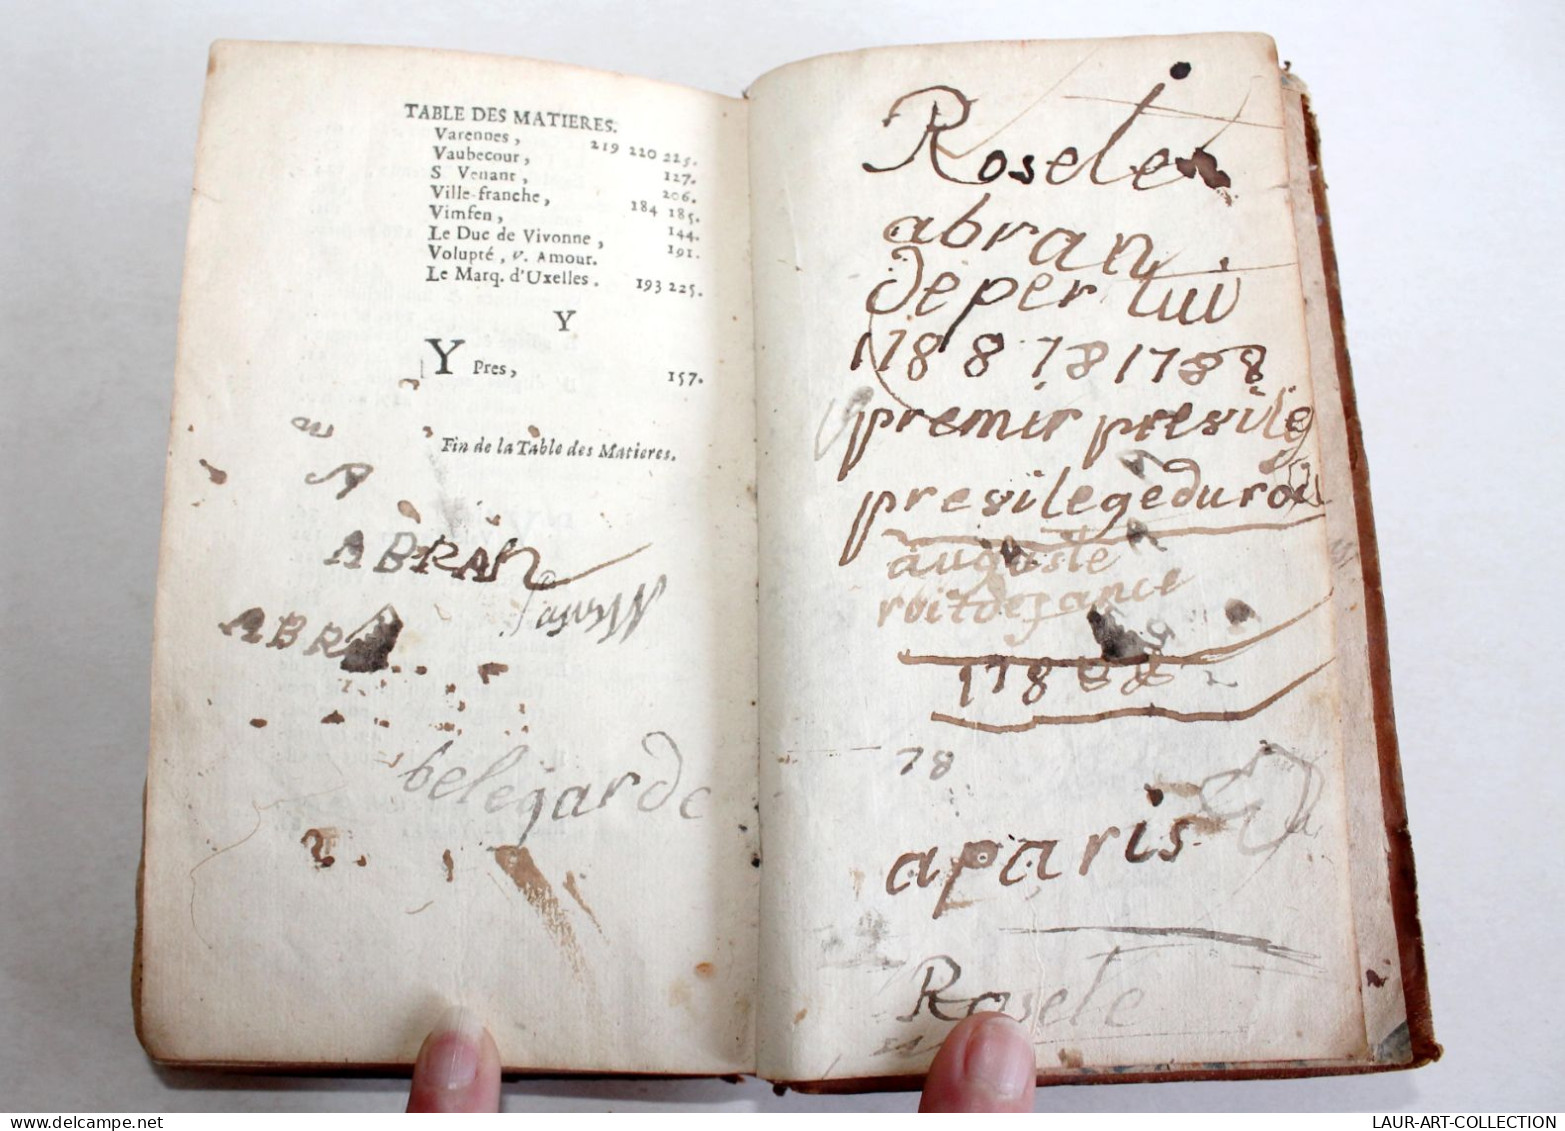 TABLE DES MATIERES.
Varennes, 219 220 225.
Vaubecour, 127.
S Venant, 206.
Ville-franche, 184 185.
Vimfen, 144.
Le Duc de Vivonne, 191.
Volupté, v. Amour.
Le Marq. d'Uxelles. 193 225.
Y
YPres, 157.
Fin de la Table des Matieres.
ABRAN
ABRA
belegarde
Rosele
abran
deper lui
1788 78 1788
premir presvileg
presvilege du roi
auguste
roit de fance
1788
78
a paris
Rosele
LAUR-ART-COLLECTION
www.delcampe.net